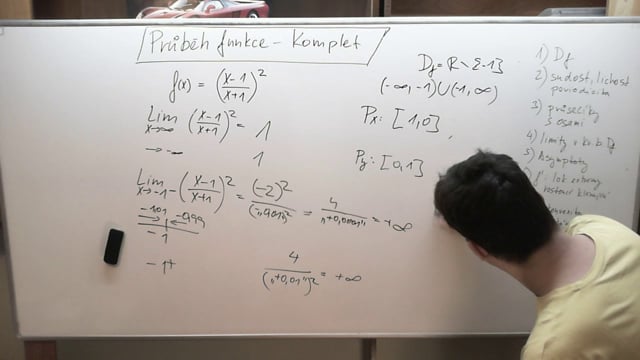 Průběh funkce - Komplet
f(x) = ((x-1)/(x+1))²
Lim x→∞ ((x-1)/(x+1))² = 1
→ -∞ 1
Lim x→-1- ((x-1)/(x+1))² = (-2)²/("-0,01")² = 4/"+0,0001" = +∞
-1,01 -0,99
-1
-1+ 4/("+0,01")² = +∞
Df = R \ {-1}
(-∞,-1)∪(-1,∞)
Px: [1,0]
Py: [0,1]
1) Df
2) sudost, lichost
periodicita
3) průsečíky
s osami
4) limity v kr. b. Df
5) Asymptoty
f': lok. extrémy